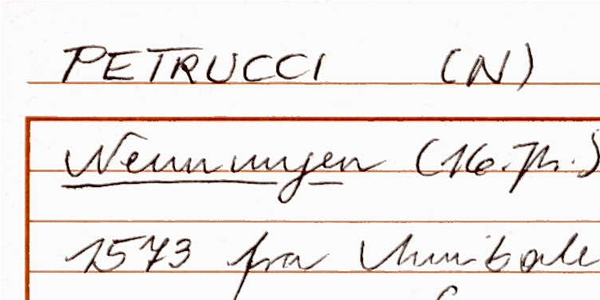 PETRUCCI (N)
Nennungen (16. Jh.)
1573 fra Annibale